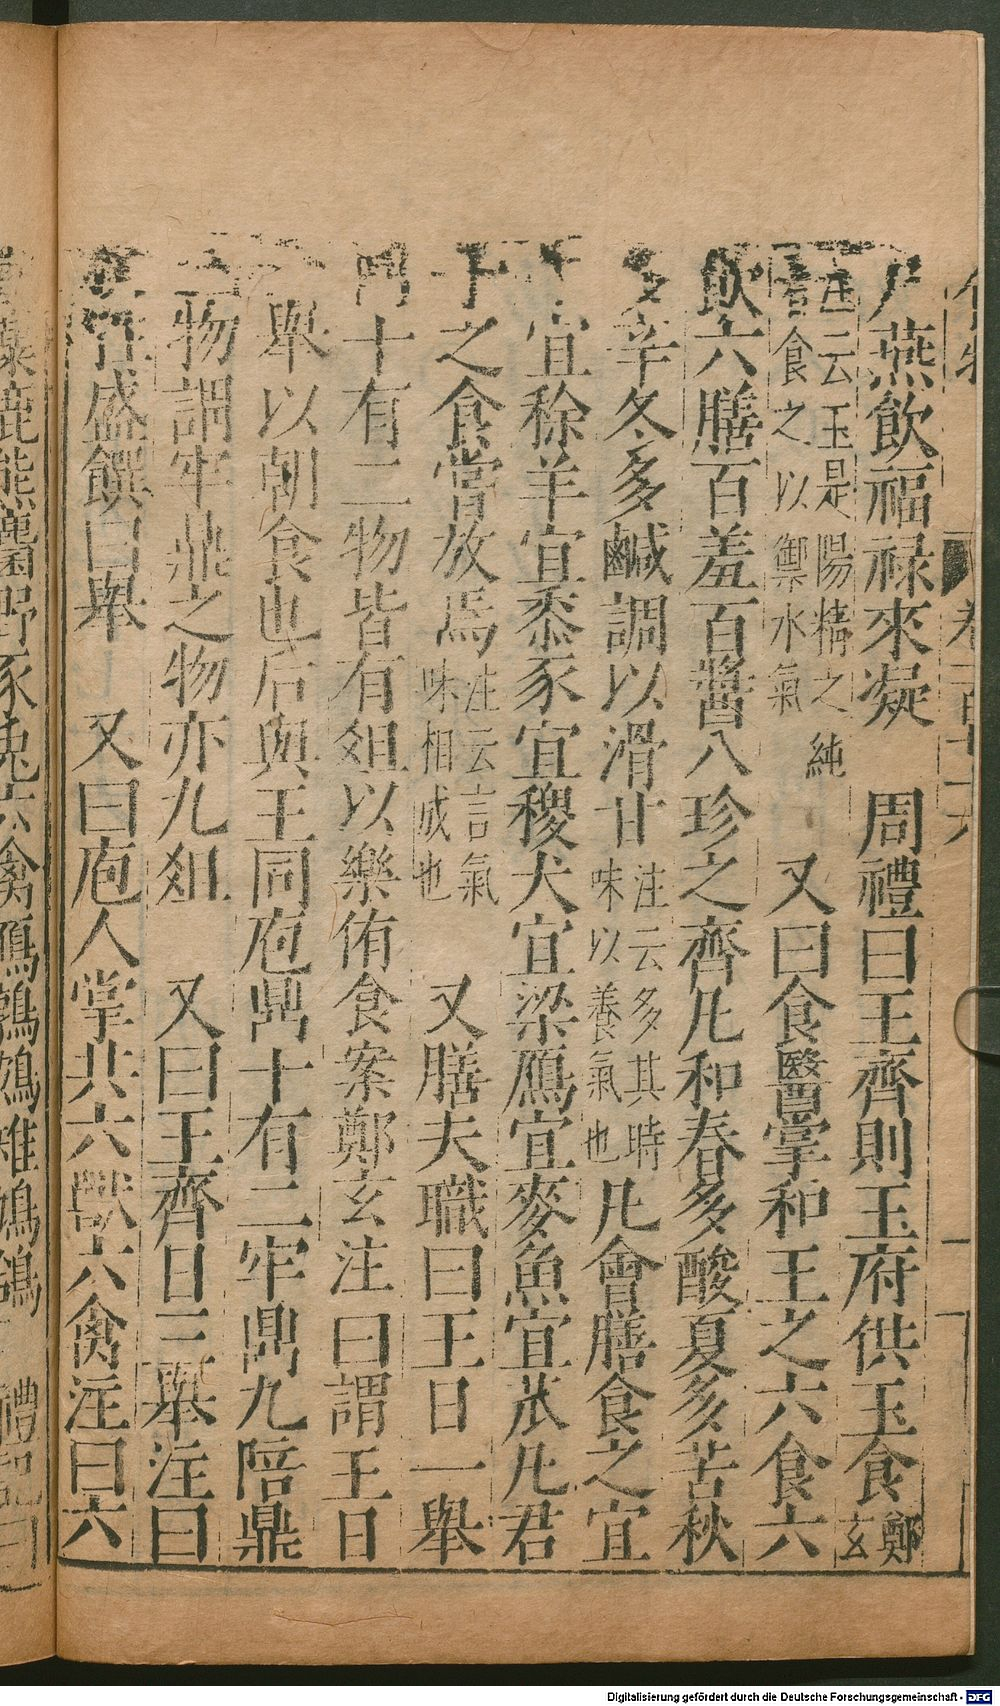 尸燕飲福祿來凝　周禮曰王齊則玉府供玉食鄭玄
注云玉是陽精之純
食之以禦水氣　又曰食醫掌和王之六食六
飲六膳百羞百醬八珍之齊凡和春多酸夏多苦秋
多辛冬多鹹調以滑甘注云多其時味以養氣也凡會膳食之宜
牛宜稌羊宜黍豕宜稷犬宜梁鴈宜麥魚宜苽凡君
子之食當放焉注云言氣味相成也　又膳夫職曰王日一舉
鼎十有二物皆有爼以樂侑食案鄭玄注曰謂王日
一舉以朝食也后與王同庖鼎十有二牢鼎九陪鼎
三物謂牢鼎之物亦九爼　又曰王齊日三舉注曰
牲盛饌曰舉　又曰庖人掌共六獸六禽注曰六
鹿熊麕野豕兔六禽鴈鶉鷃雉鳩鴿　禮記曰
Digitalisierung gefördert durch die Deutsche Forschungsgemeinschaft - DFG